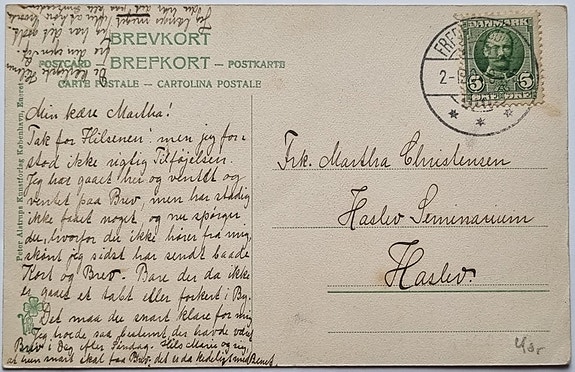 BREVKORT
POSTCARD — BREFKORT — POSTKARTE
CARTE POSTALE — CARTOLINA POSTALE
Peter Alstrups Kunstforlag København, Eneret
DANMARK
5 5
FRED
2-
Min kære Martha!
Tak for Hilsenen! men jeg for-
stod ikke rigtig Tilföjelsen.
Jeg har gaaet her og ventet og
ventet paa Brev, men har stadig
ikke faaet noget, og nu spörger
du, hvorfor du ikke hörer fra mig,
skönt jeg sidst har sendt baade
Kort og Brev. Bare der da ikke
er gaaet et tabt eller forkert i By.
Det maa du snart klare for mig
Jeg troede saa bestemt der havde været
Brev i Dag efter Söndag. Hils Marie og sig,
at hun snart skal faa Brev. det er da kedeligt med Benet.
Frk. Martha Christensen
Haslev Seminarium
Haslev.